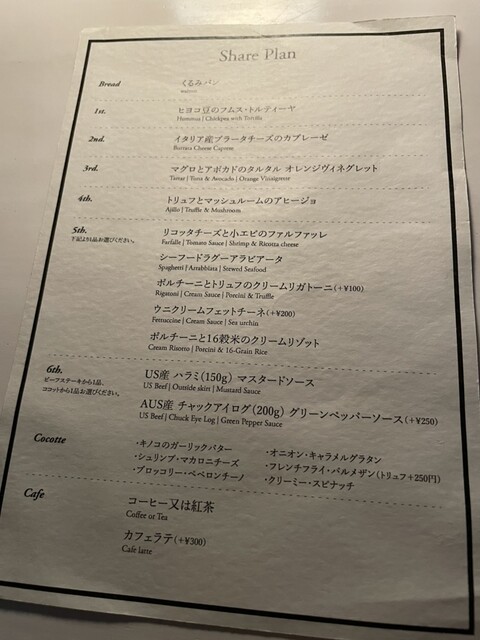 Share Plan
Bread
くるみパン
1st.
ヒヨコ豆のフムス・トルティーヤ
Hummus | Chickpea with Tortilla
2nd.
イタリア産ブラータチーズのカプレーゼ
Burrata Cheese Caprese
3rd.
マグロとアボカドのタルタル オレンジヴィネグレット
Tartar | Tuna & Avocado | Orange Vinaigrette
4th.
トリュフとマッシュルームのアヒージョ
Ajillo | Truffle & Mushroom
5th.
下記より1品お選びください。
リコッタチーズと小エビのファルファッレ
Farfalle | Tomato Sauce | Shrimp & Ricotta cheese
シーフードラグーアラビアータ
Spaghetti | Arrabbiata | Stewed Seafood
ポルチーニとトリュフのクリームリガトーニ(+¥100)
Rigatoni | Cream Sauce | Porcini & Truffle
ウニクリームフェットチーネ(+¥200)
Fettuccine | Cream Sauce | Sea urchin
ポルチーニと16穀米のクリームリゾット
Cream Risotto | Porcini & 16-Grain Rice
6th.
ビーフステーキから1品、
ココットから1品お選びください。
US産 ハラミ(150g) マスタードソース
US Beef | Outside skirt | Mustard Sauce
AUS産 チャックアイログ(200g) グリーンペッパーソース(+¥250)
US Beef | Chuck Eye Log | Green Pepper Sauce
Cocotte
・キノコのガーリックバター
・シュリンプ・マカロニチーズ
・ブロッコリー・ペペロンチーノ
・オニオン・キャラメルグラタン
・フレンチフライ・パルメザン(トリュフ+250円)
・クリーミー・スピナッチ
Cafe
コーヒー又は紅茶
Coffee or Tea
カフェラテ(+¥300)
Cafe latte